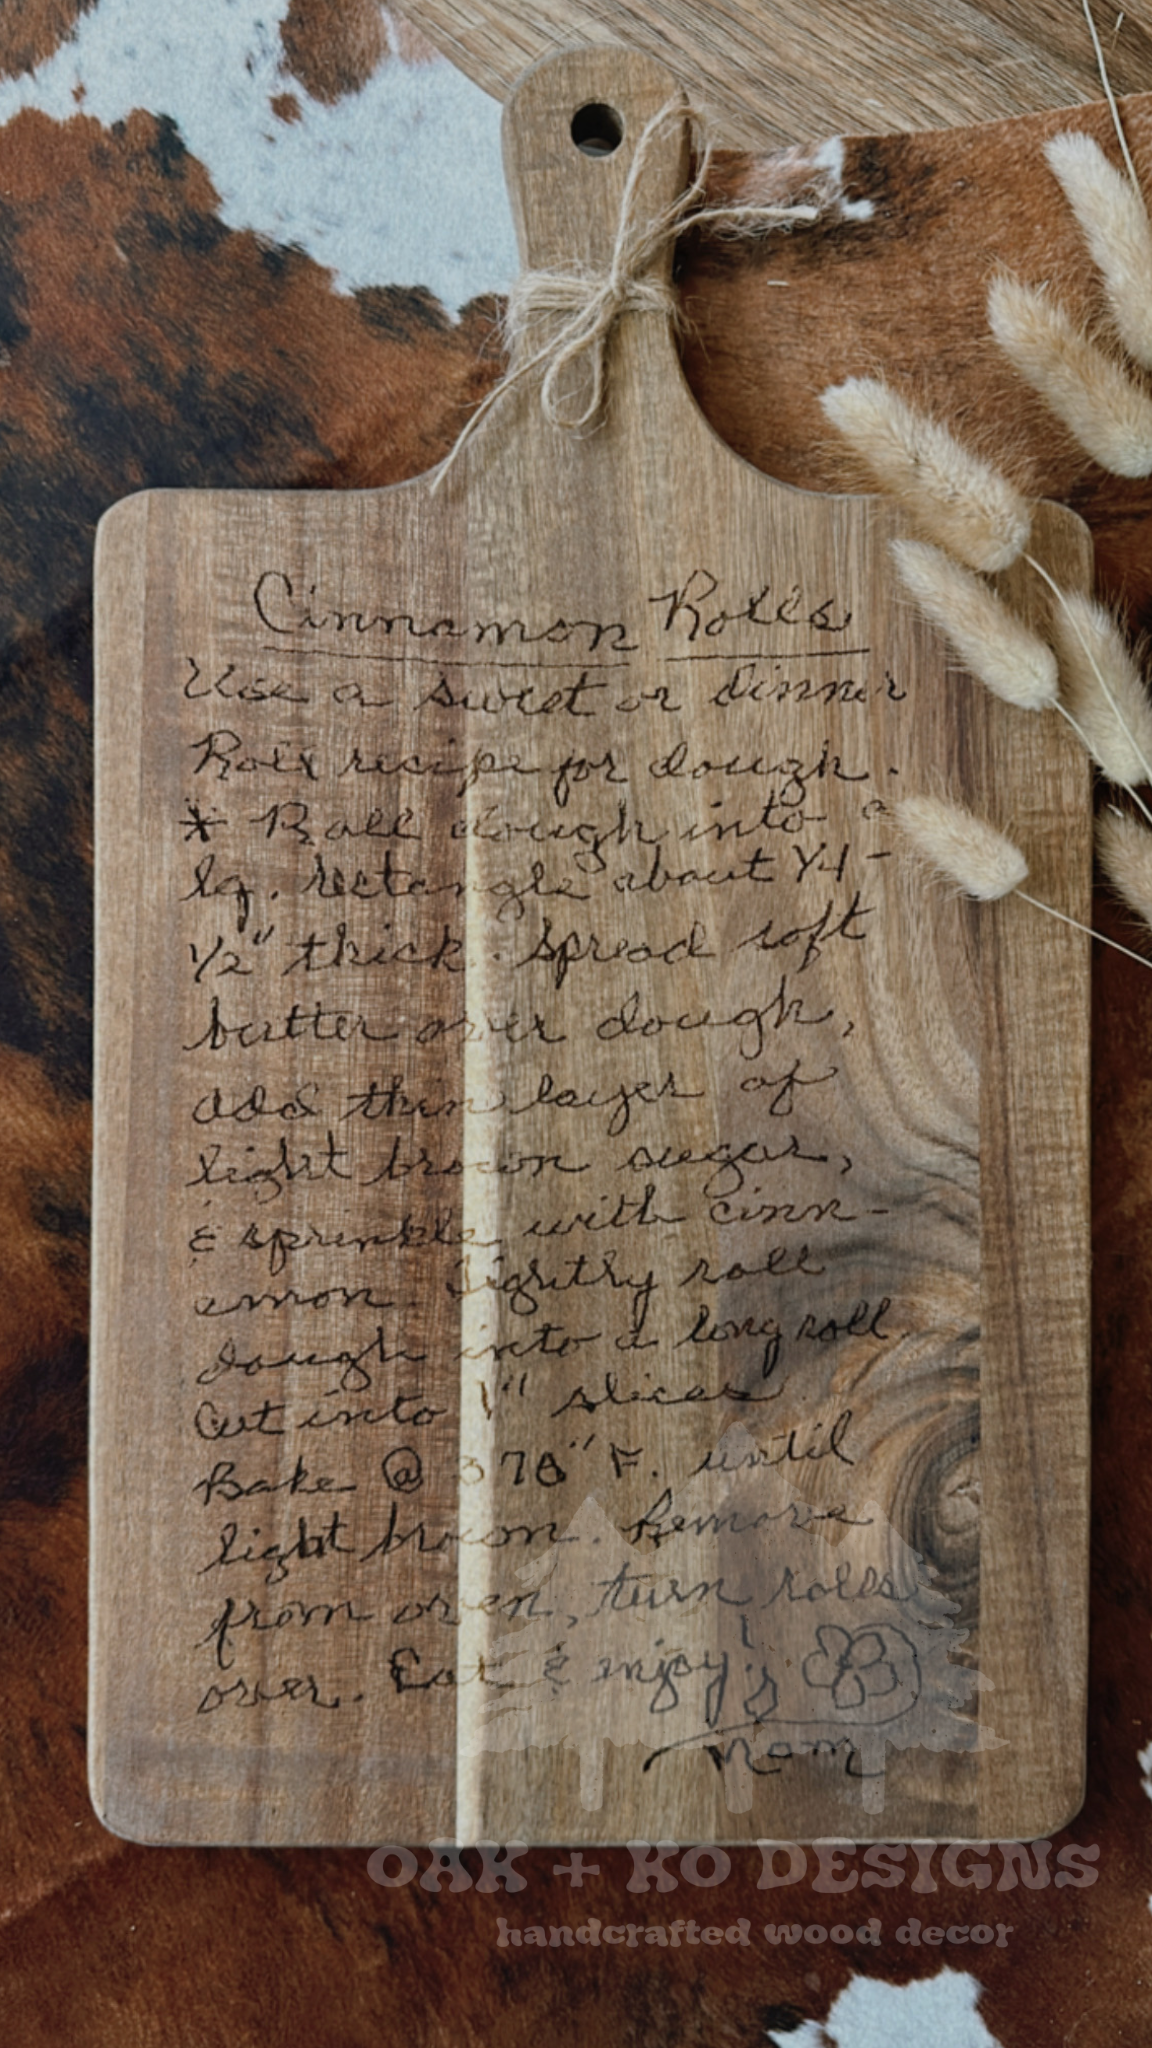 Cinnamon Rolls
Use a sweet or dinner
Roll recipe for dough.
* Roll dough into a
lg. rectangle about 1/4 -
1/2" thick. Spread soft
butter over dough,
add thin layer of
light brown sugar,
& sprinkle with cinn-
amon. Tightly roll
dough into a long roll.
Cut into 1" slices
Bake @ F. until
light brown. Remove
from oven, turn rolls
over. Eat & enjoy!
Mom
OAK + KO DESIGNS
handcrafted wood decor